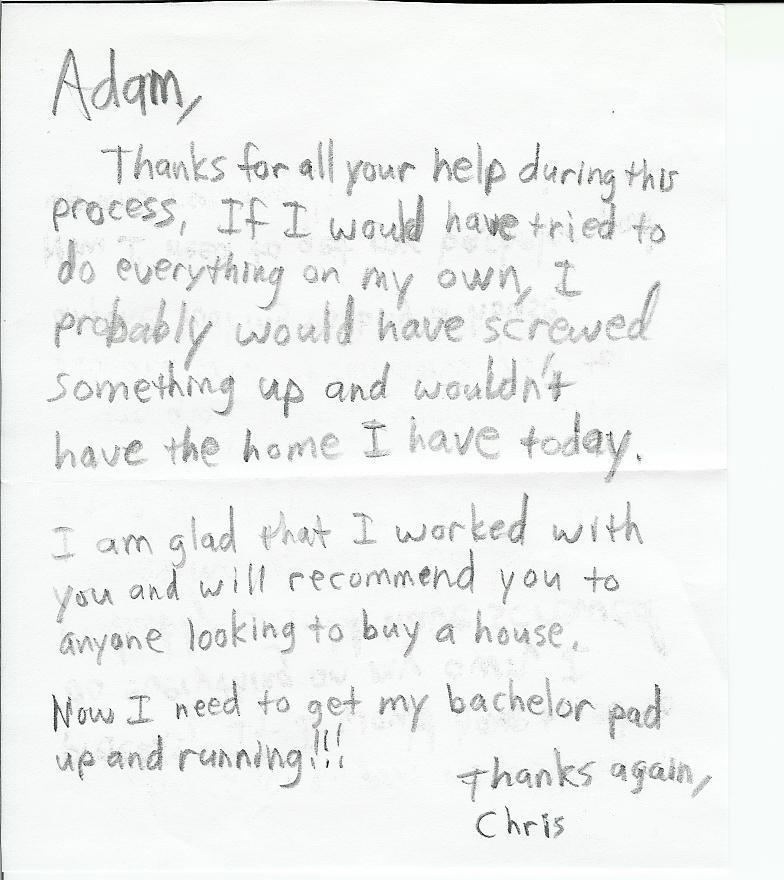 Adam,
Thanks for all your help during this
process. If I would have tried to
do everything on my own, I
probably would have screwed
something up and wouldn't
have the home I have today.
I am glad that I worked with
you and will recommend you to
anyone looking to buy a house.
Now I need to get my bachelor pad
up and running!!!
Thanks again,
Chris